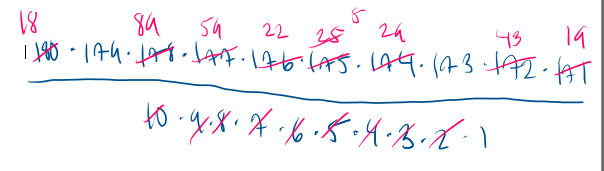 18 89 59 22 25 5 29 43 19
180 · 179 · 178 · 177 · 176 · 175 · 174 · 173 · 172 · 171
10 · 9 · 8 · 7 · 6 · 5 · 4 · 3 · 2 · 1